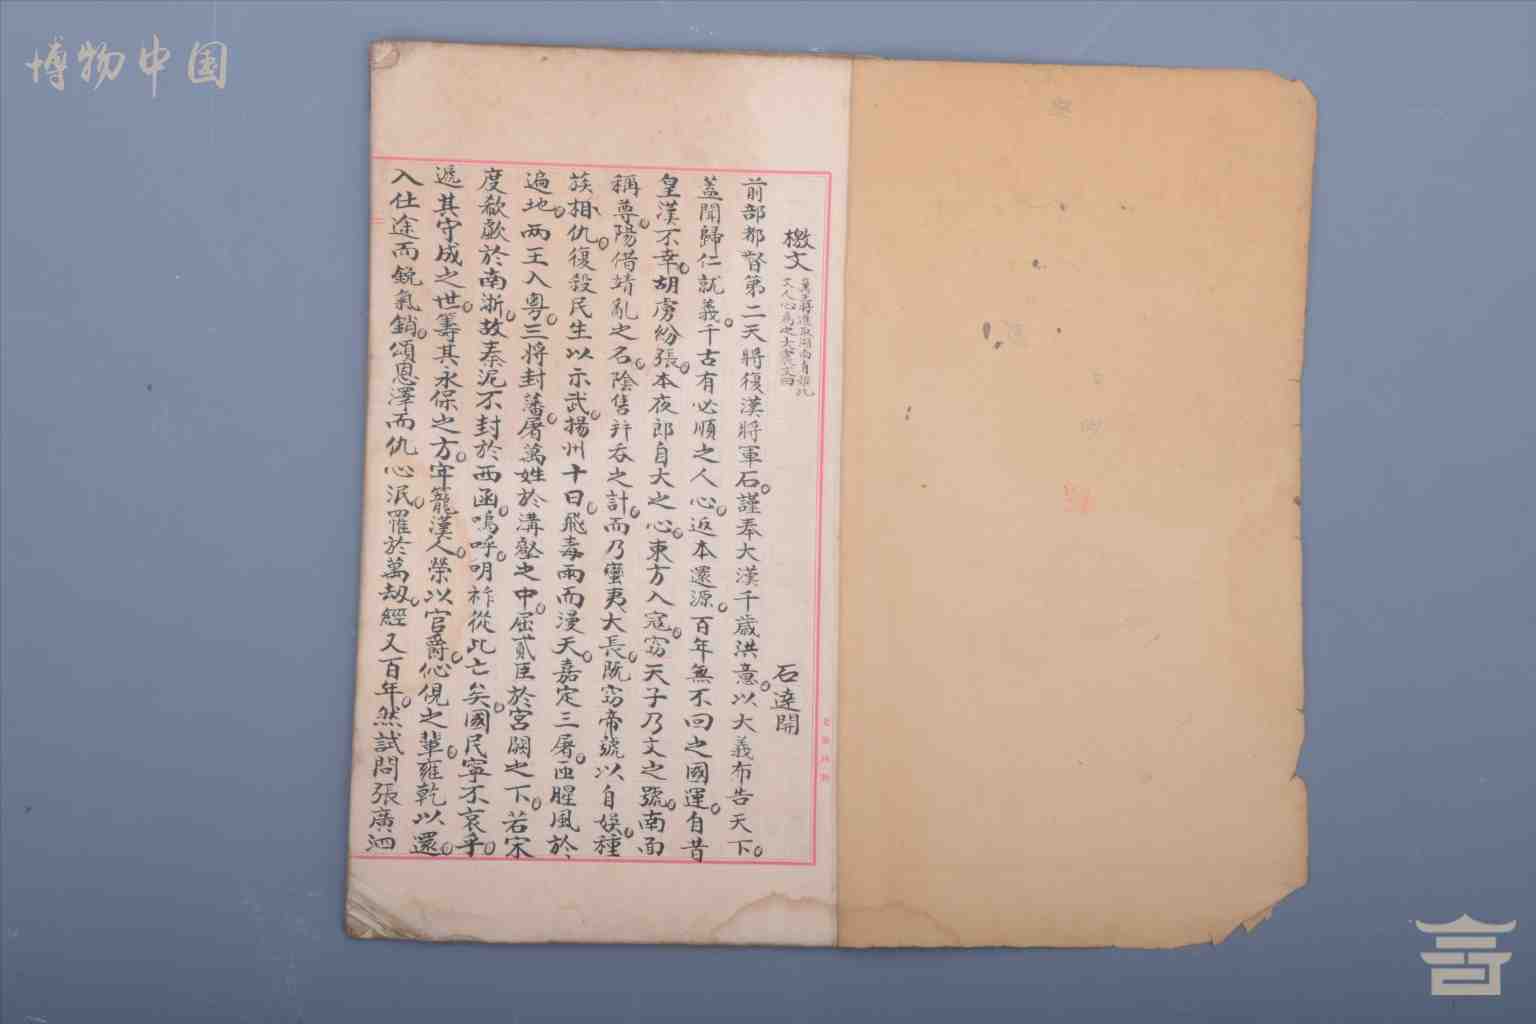 博物中国
檄文
翼王將進取湖南有讀此
文人心為之大震文曰
石達開
前部都督第二天將復漢將軍石。謹奉大漢千歲洪意。以大義布告天下。
蓋聞歸仁就義。千古有必順之人心。返本還源。百年無不回之國運。自昔
皇漢不幸。胡虜紛張。本夜郎自大之心。東方入寇。窃天子乃文之號。南面
稱尊。陽借靖亂之名。陰售并吞之計。而乃蠻夷大長。既窃帝號以自娛。種
族相仇。復殺民生以示武。揚州十日。飛毒雨而漫天。嘉定三屠。匝腥風於
遍地。兩王入粵。三將封藩。屠萬姓於溝壑之中。屈貳臣於宮闕之下。若宋
度欷歔於南浙。故秦泥不封於西函。嗚呼。明祚從此亡矣。國民寧不哀乎。
遞其守成之世。籌其永保之方。牢籠漢人。榮以官爵。伈俔之輩。雍乾以還。
入仕途而銳氣銷。頌恩澤而仇心泯。罹於萬劫。經又百年。然試問張廣泗